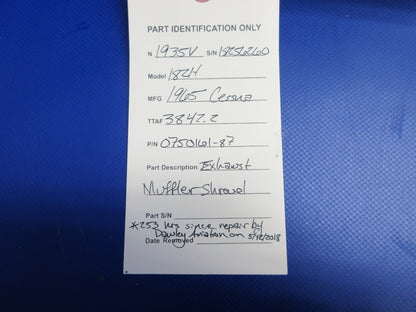 PART IDENTIFICATION ONLY
N 1935V S/N 18256260
Model 182H
MFG 1965 Cessna
TTAF 3842.2
P/N 0750161-87
Part Description Exhaust
Muffler Shroud
Part S/N
*253 hrs since repair by
Dawley Aviation on 5/18/2018
Date Removed